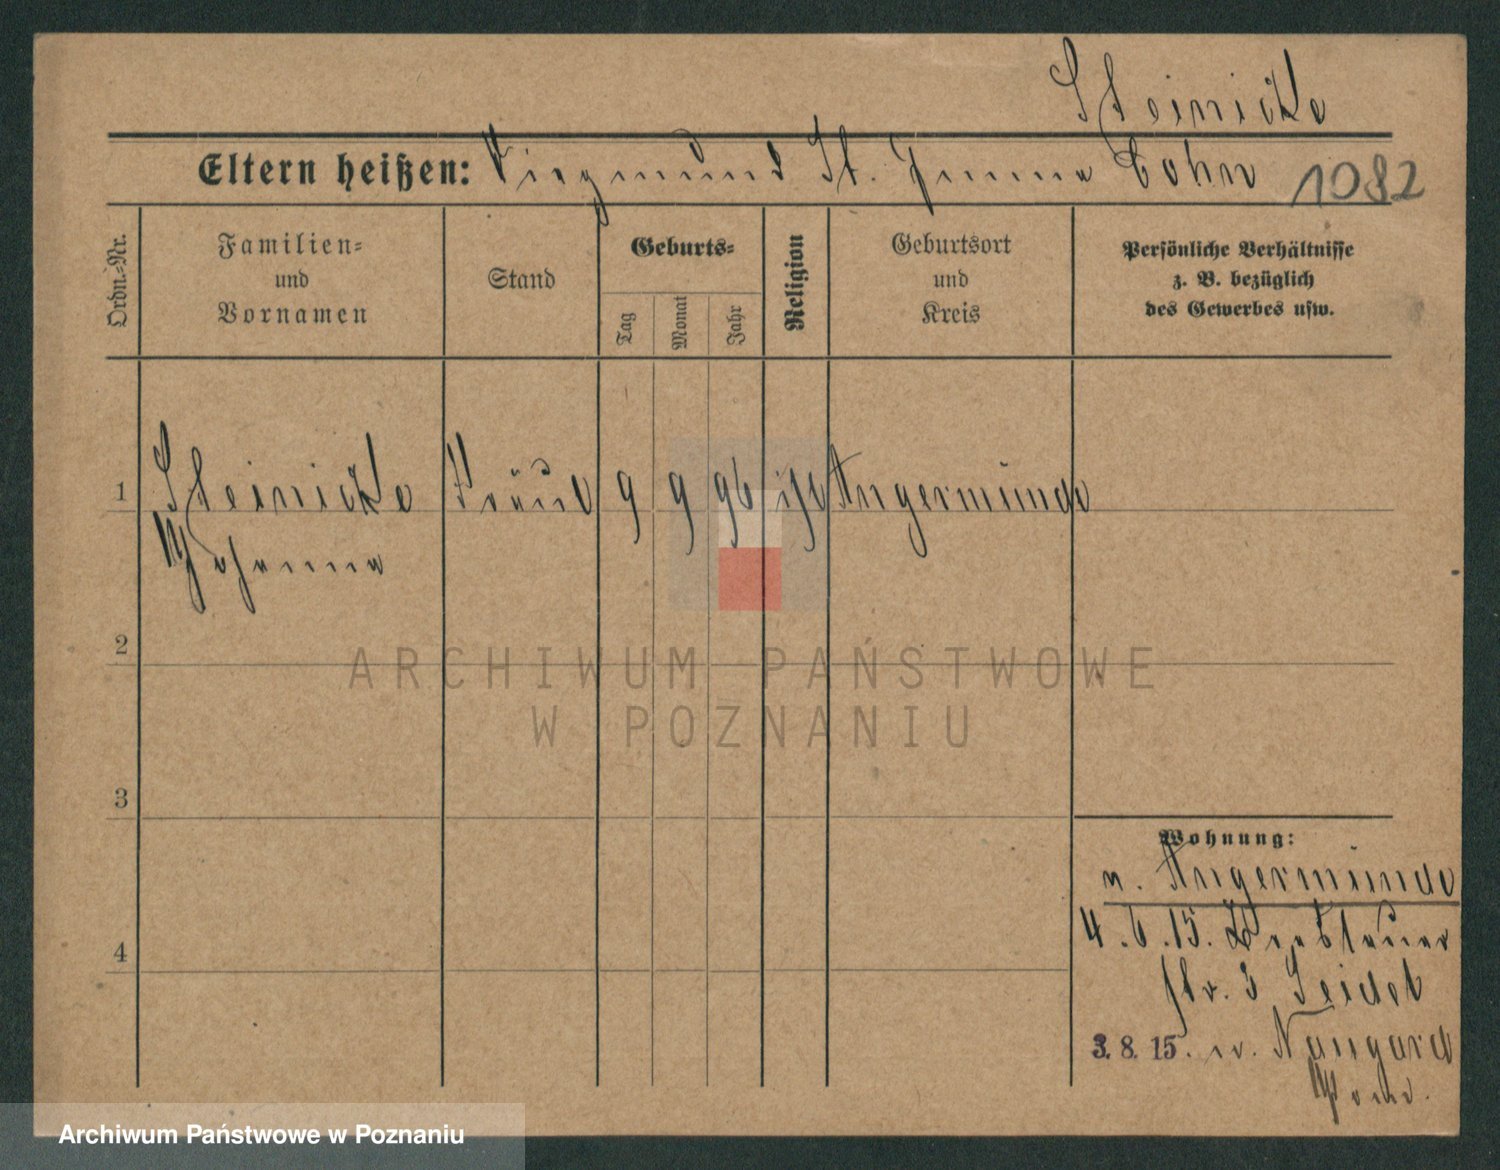 Steinicke
Eltern heißen: Siegmund St. Emma Cohn 1082
Ordn.-Nr.
Familien- und Vornamen
Stand
Geburts-
Tag
Monat
Jahr
Religion
Geburtsort und Kreis
Persönliche Verhältnisse
z. B. bezüglich
des Gewerbes usw.
1 Steinicke Fräul 9 9 96 isr Angermünde
Johanna
2
3
4
Wohnung:
v. Angermünde
4.6.15. Breslauer
str. 3 Seidel
3. 8. 15. n. Naugard
Pom.
ARCHIWUM PAŃSTWOWE
W POZNANIU
Archiwum Państwowe w Poznaniu